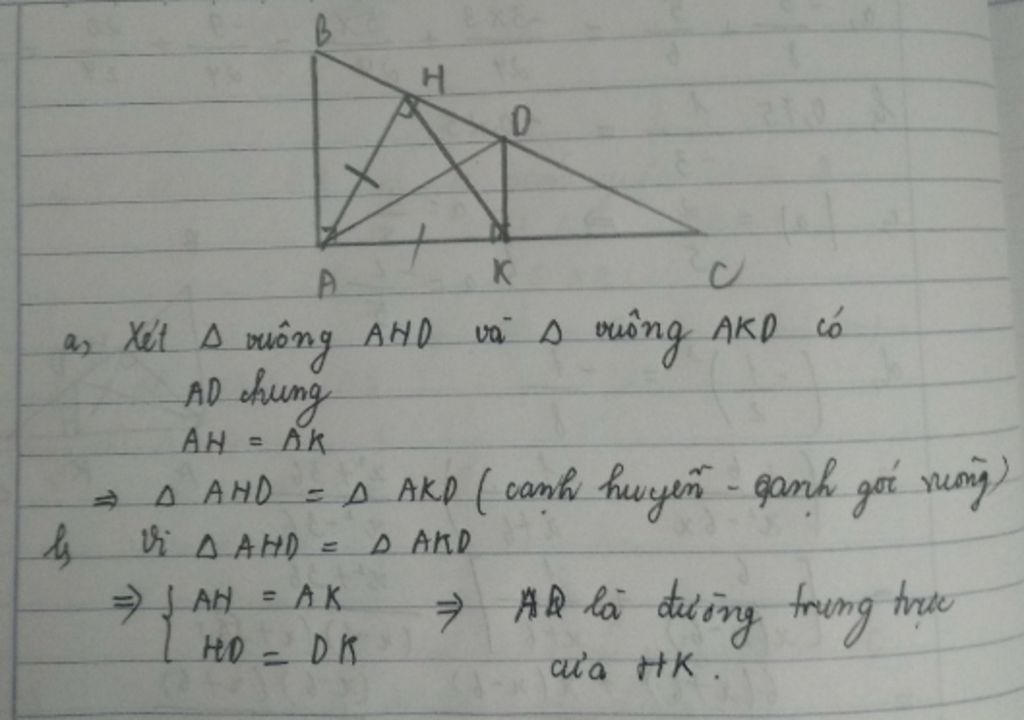 B
H
D
A
K
C
a, Xét Δ vuông AHD và Δ vuông AKD có
AD chung
AH = AK
⇒ Δ AHD = Δ AKD ( cạnh huyền - cạnh góc vuông)
b, Vì Δ AHD = Δ AKD
⇒ { AH = AK ⇒ AD là đường trung trực
HD = DK của HK .